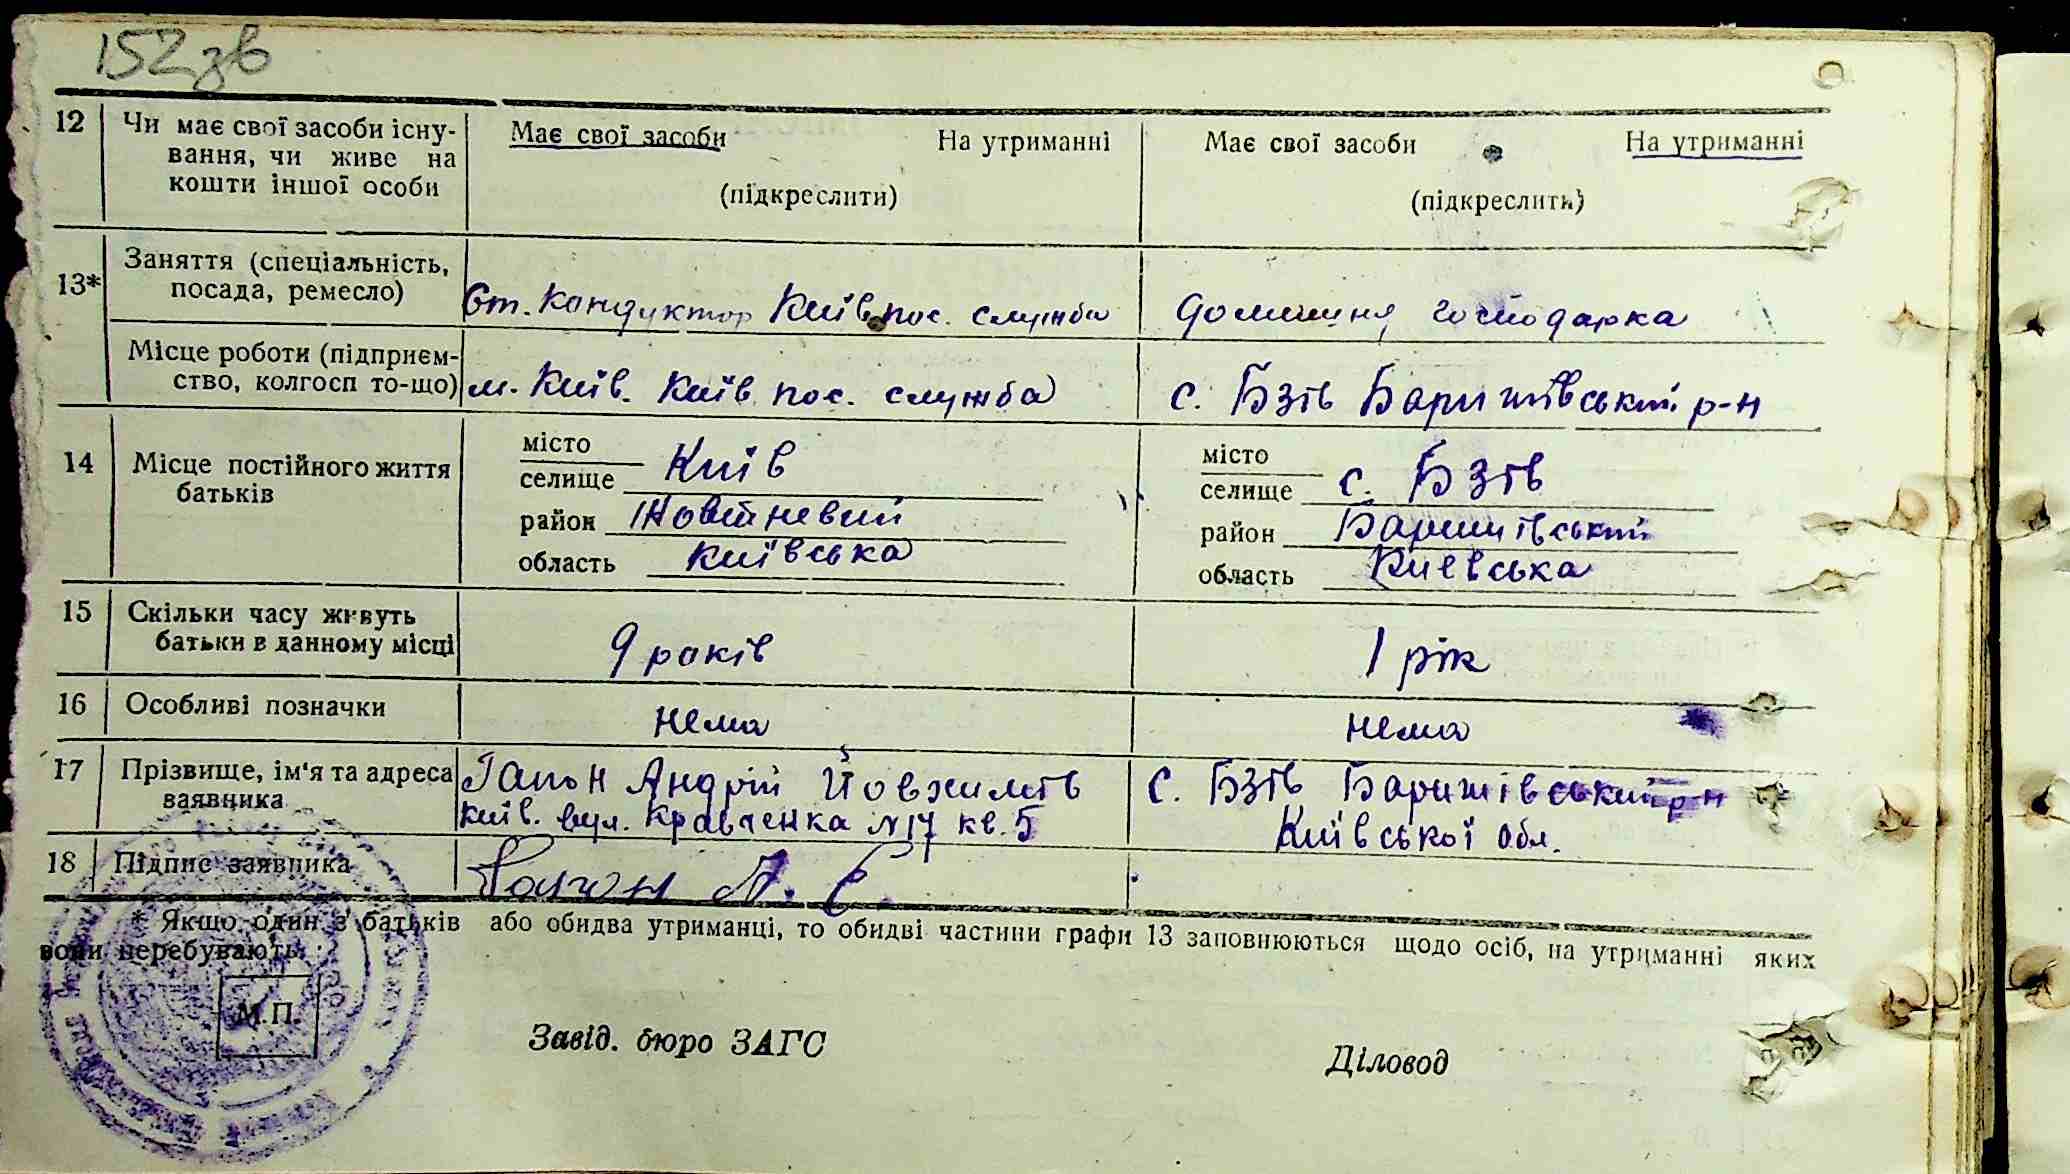 152 зв
12 Чи має свої засоби існу- Має свої засоби На утриманні Має свої засоби На утриманні
вання, чи живе на
кошти іншої особи (підкреслити) (підкреслити)
13* Заняття (спеціальність,
посада, ремесло) От. кондуктор Київ пос. служба домашня господарка
Місце роботи (підприєм-
ство, колгосп то-що) м. Київ. Київ. пос. служба с. Бзів Баришівський р-н
14 Місце постійного життя
батьків
місто
селище Київ
район Жовтневий
область київська
місто
селище с. Бзів
район Баришівський
область Киевська
15 Скільки часу живуть
батьки в данному місці 9 років 1 рік
16 Особливі позначки нема нема
17 Прізвище, ім'я та адреса Гапон Андрій с. Бзів Баришівський р-н
заявника Київ. вул. Кравченка N 17 кв. 5 Київської обл.
18 Підпис заявника Гапон А. Є.
* Якщо один з батьків або обидва утриманці, то обидві частини графи 13 заповнюються щодо осіб, на утриманні яких
вони перебувають.
М.П.
Завід. бюро ЗАГС
Діловод